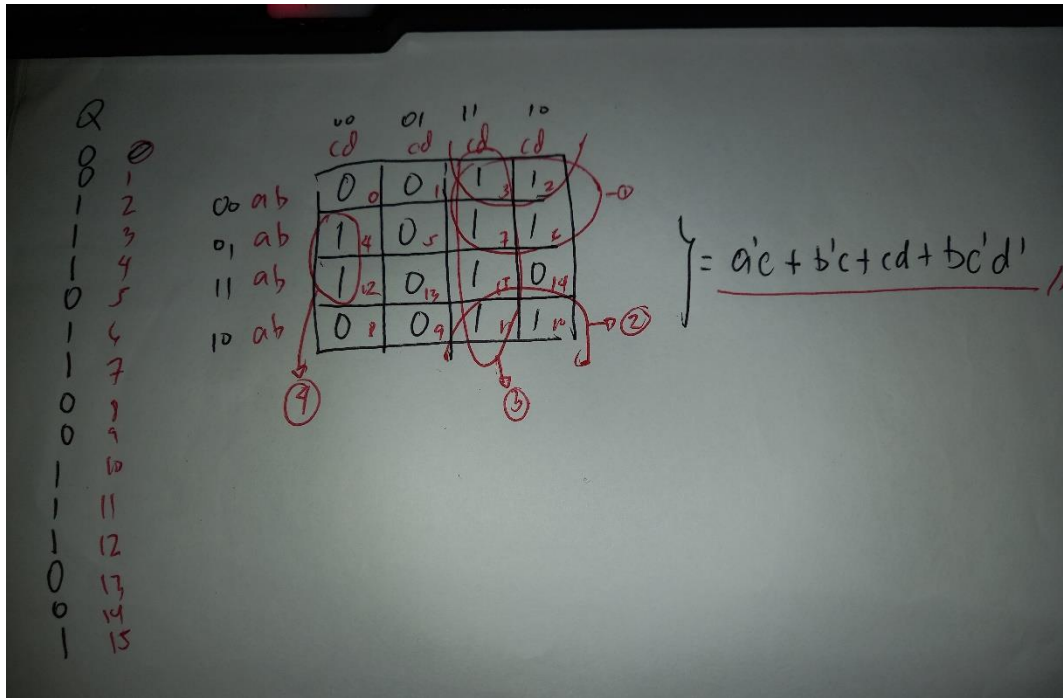 Q
0 0
0 1
1 2
1 3
1 4
0 5
1 6
1 7
0 8
0 9
1 10
1 11
1 12
0 13
0 14
1 15
00 01 11 10
cd cd cd cd
00 ab 0 0 0 1 1 3 1 2 ①
01 ab 1 4 0 5 1 7 1 6
11 ab 1 12 0 13 1 15 0 14
10 ab 0 8 0 9 1 11 1 10 ②
④ ③
y = a'c + b'c + cd + bc'd'